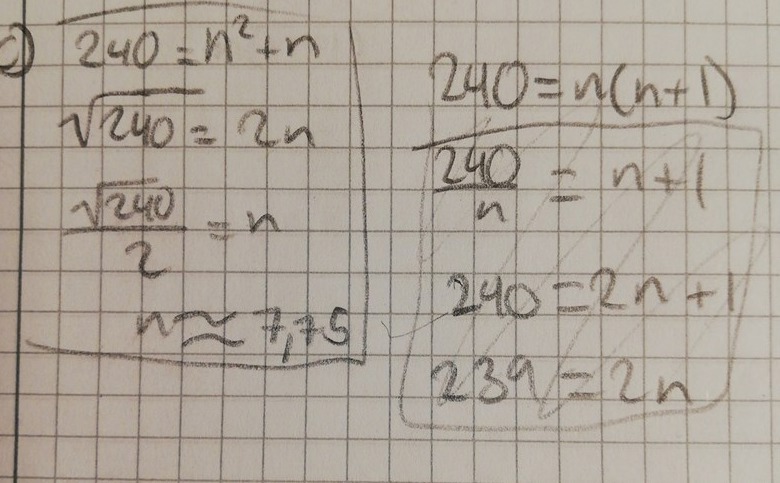 c) 240 = n² + n
√240 = 2n
√240/2 = n
n ≈ 7,75
240 = n(n+1)
240/n = n+1
240 = 2n+1
239 = 2n